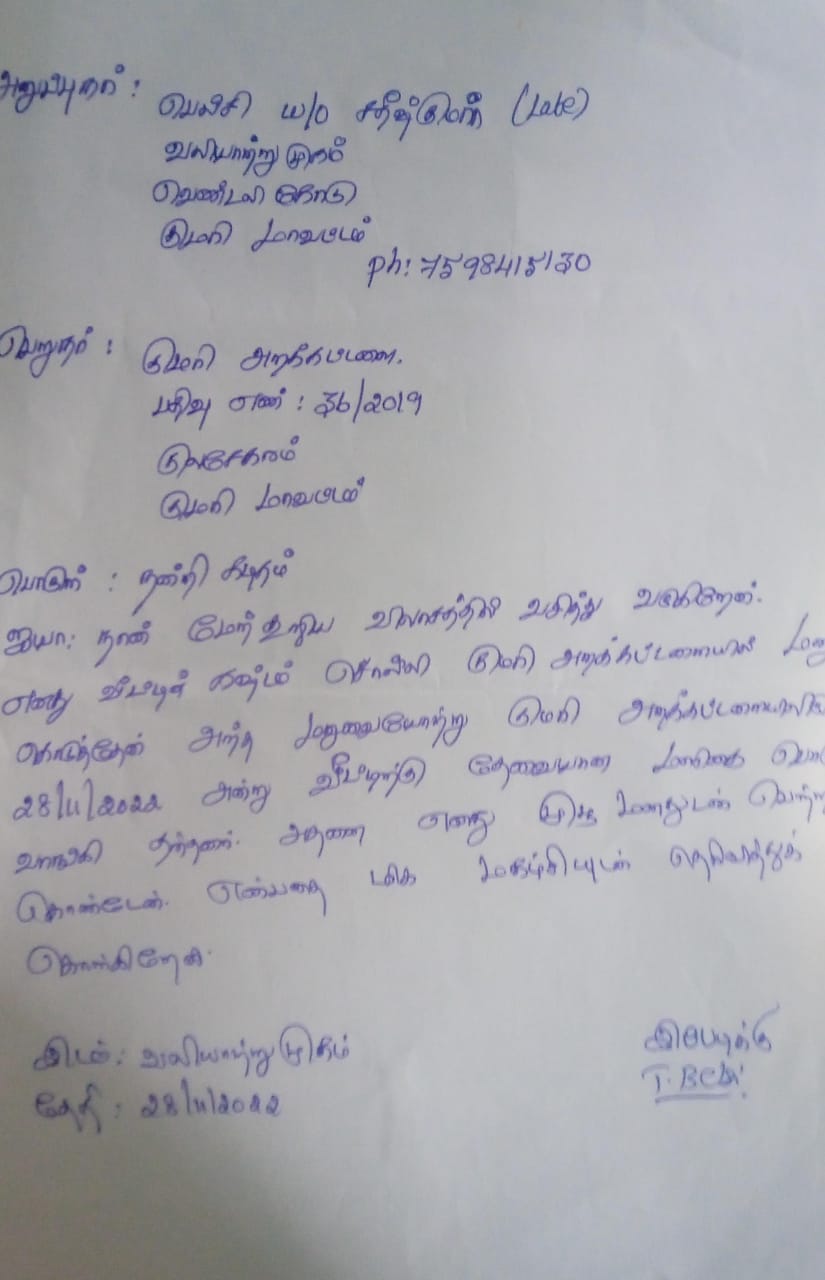 அனுப்புநர் :
பெல்சி w/o (Late)
வலியாற்று முகம்
வெண்டலிகோடு
குமரி மாவட்டம்
ph: 7598415130
பெறுநர் : குமரி அறக்கட்டளை.
பதிவு எண் : 36/2019
குலசேகரம்
குமரி மாவட்டம்
பொருள் : நன்றி கடிதம்
ஐயா: நான் மேற்கூறிய விலாசத்தில் வசித்து வருகிறேன்.
எனது வீட்டின் கஷ்டம் சொல்லி குமரி அறக்கட்டளையில் மனு
கொடுத்தேன் அந்த மனுவையேற்று குமரி அறக்கட்டளையி
28/11/2022 அன்று வீட்டிற்கு தேவையான மளிகை பொ
வாங்கி தந்தனர். அதனை எனது முழு மனதுடன் பெற்று
கொண்டேன். என்பதை மிக மகிழ்சியுடன் தெரிவித்துக்
கொள்கிறேன்.
இடம்: வலியாற்று முகம்
தேதி : 28/11/2022
இப்படிக்கு
T. Belsi